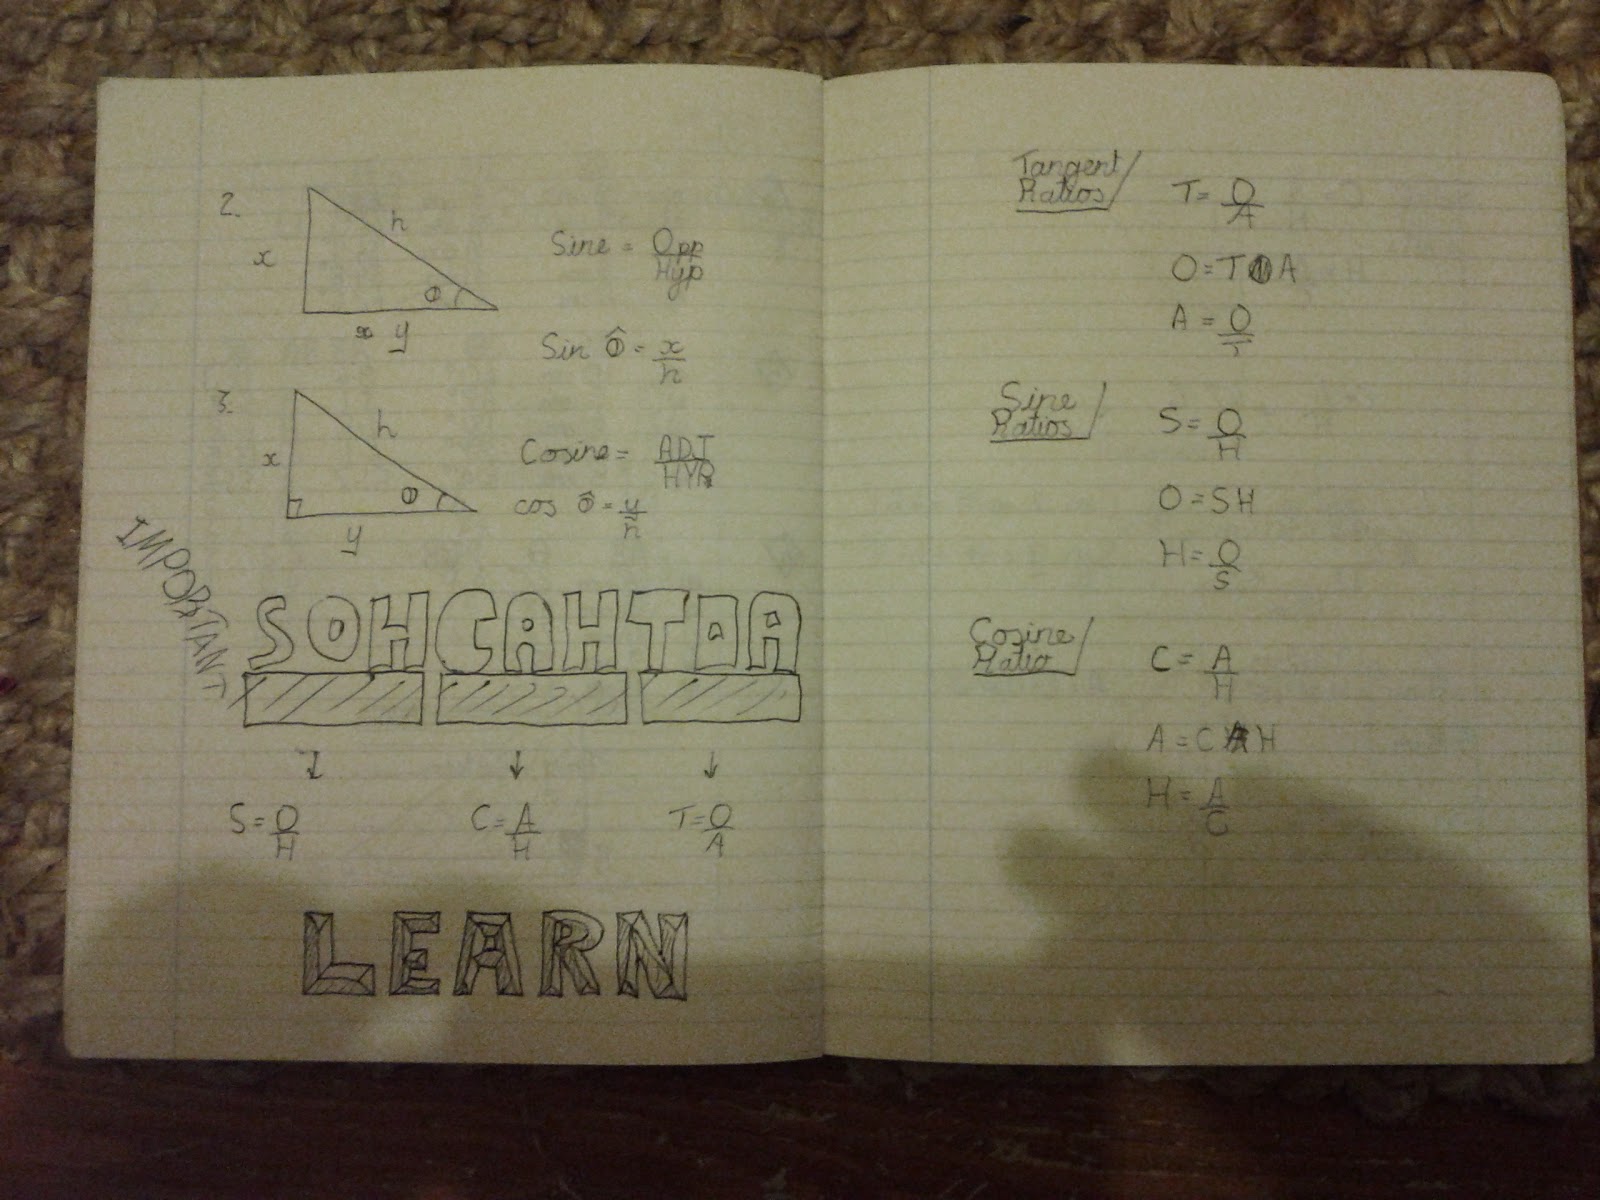 2.
h
x
θ
y
Sine = Opp/Hyp
Sin θ̂ = x/h
3.
h
x
θ
y
Cosine = ADJ/HYP
cos θ̂ = y/h
IMPORTANT
SOHCAHTOA
S = O/H
C = A/H
T = O/A
LEARN
Tangent
Ratios
T = O/A
O = T A
A = O/T
Sine
Ratios
S = O/H
O = SH
H = O/S
Cosine
Ratio
C = A/H
A = C H
H = A/C